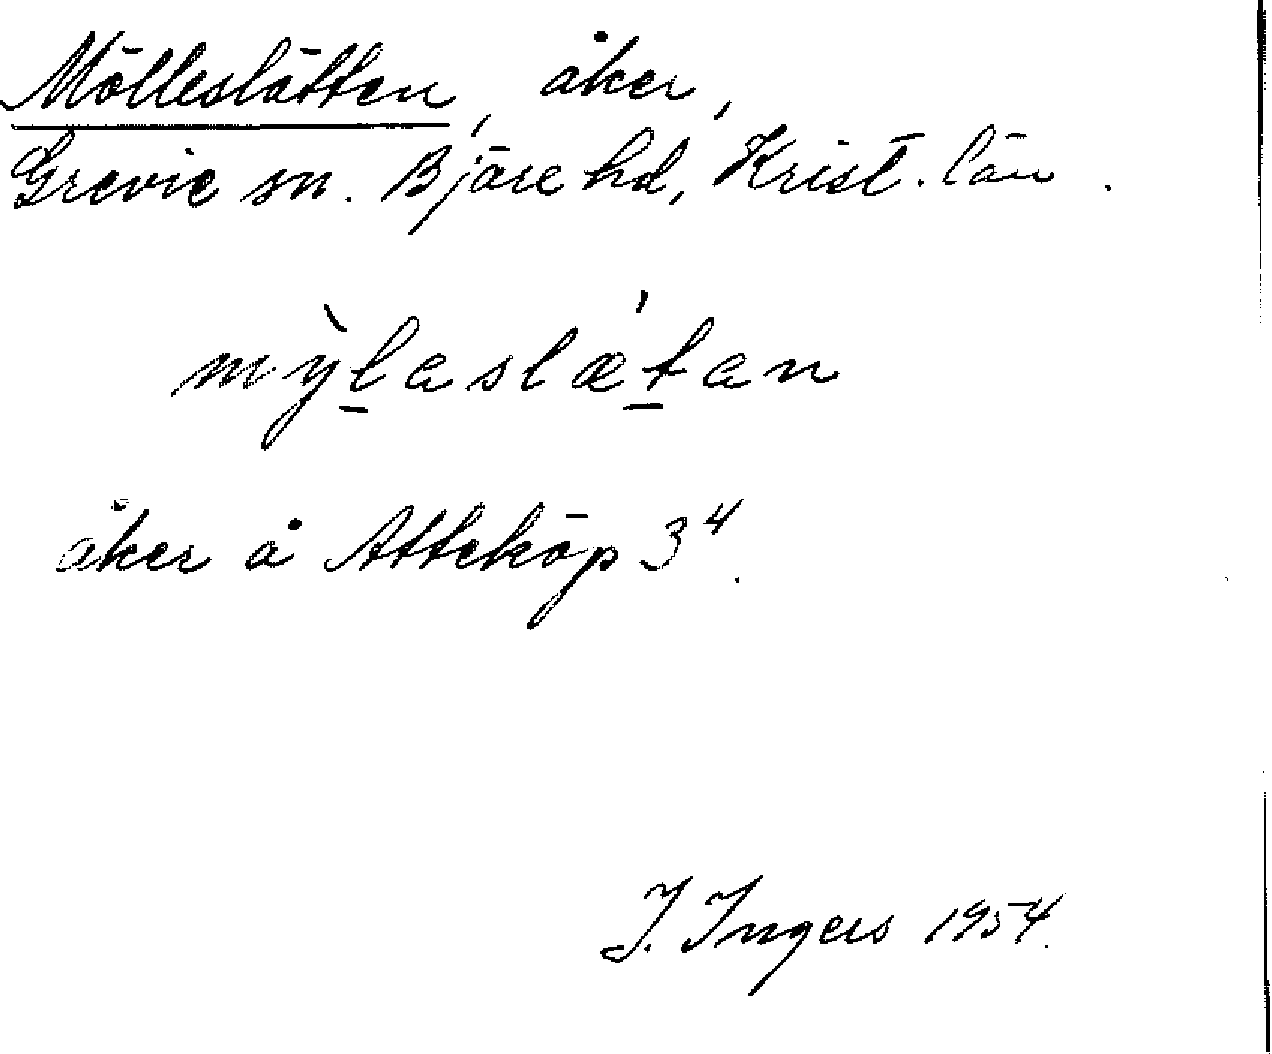 Mölleslätten, åker,
Grevie sn. Bjäre hd, Krist. län.
mỳl̲aslæ´t̲an
åker å Atteköp 3⁴.
I. Ingers 1954.